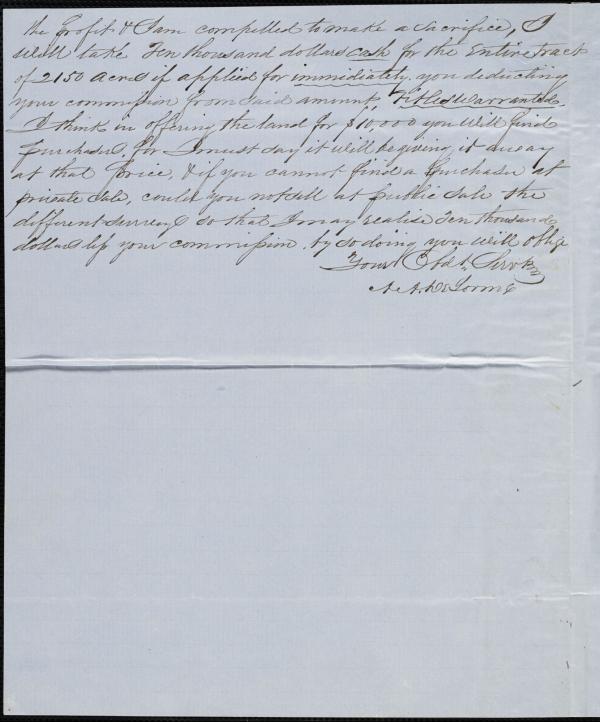 the profit & I am compelled to make a sacrifice, I
will take Ten thousand dollars cash for the Entire tract
of 2150 acres if applied for immediately. you deducting
your commission from said amount, Titles Warranted
I think in offering the land for $10,000 you will find
purchasers, for I must say it will be giving it away
at that Price, & if you cannot find a Purchaser at
private sale, could you not sell at public sale the
different surveys so that I may realise Ten thousand
dollars less your commission, by so doing you will oblige
Your Obdt. Servt.